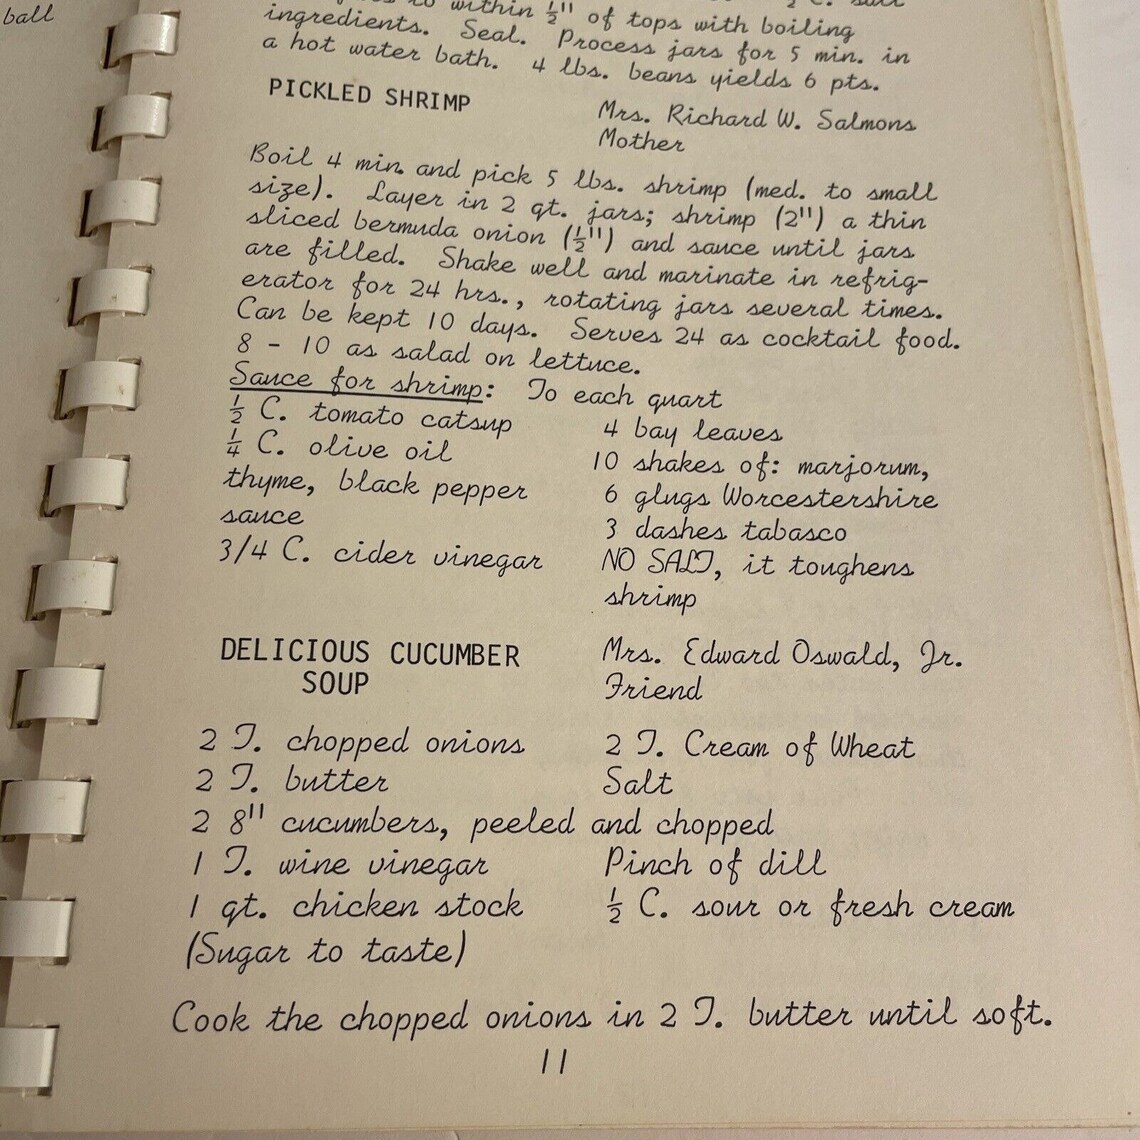 ball
to within ½" of tops with boiling
ingredients. Seal. Process jars for 5 min. in
a hot water bath. 4 lbs. beans yields 6 pts.
PICKLED SHRIMP
Mrs. Richard W. Salmons
Mother
Boil 4 min. and pick 5 lbs. shrimp (med. to small
size). Layer in 2 qt. jars; shrimp (2") a thin
sliced bermuda onion (½") and sauce until jars
are filled. Shake well and marinate in refrig-
erator for 24 hrs., rotating jars several times.
Can be kept 10 days. Serves 24 as cocktail food.
8 - 10 as salad on lettuce.
Sauce for shrimp: To each quart
½ C. tomato catsup 4 bay leaves
¼ C. olive oil 10 shakes of: marjorum,
thyme, black pepper 6 glugs Worcestershire
sauce 3 dashes tabasco
3/4 C. cider vinegar NO SALT, it toughens
shrimp
DELICIOUS CUCUMBER Mrs. Edward Oswald, Jr.
SOUP Friend
2 T. chopped onions 2 T. Cream of Wheat
2 T. butter Salt
2 8" cucumbers, peeled and chopped
1 T. wine vinegar Pinch of dill
1 qt. chicken stock ½ C. sour or fresh cream
(Sugar to taste)
Cook the chopped onions in 2 T. butter until soft.
11